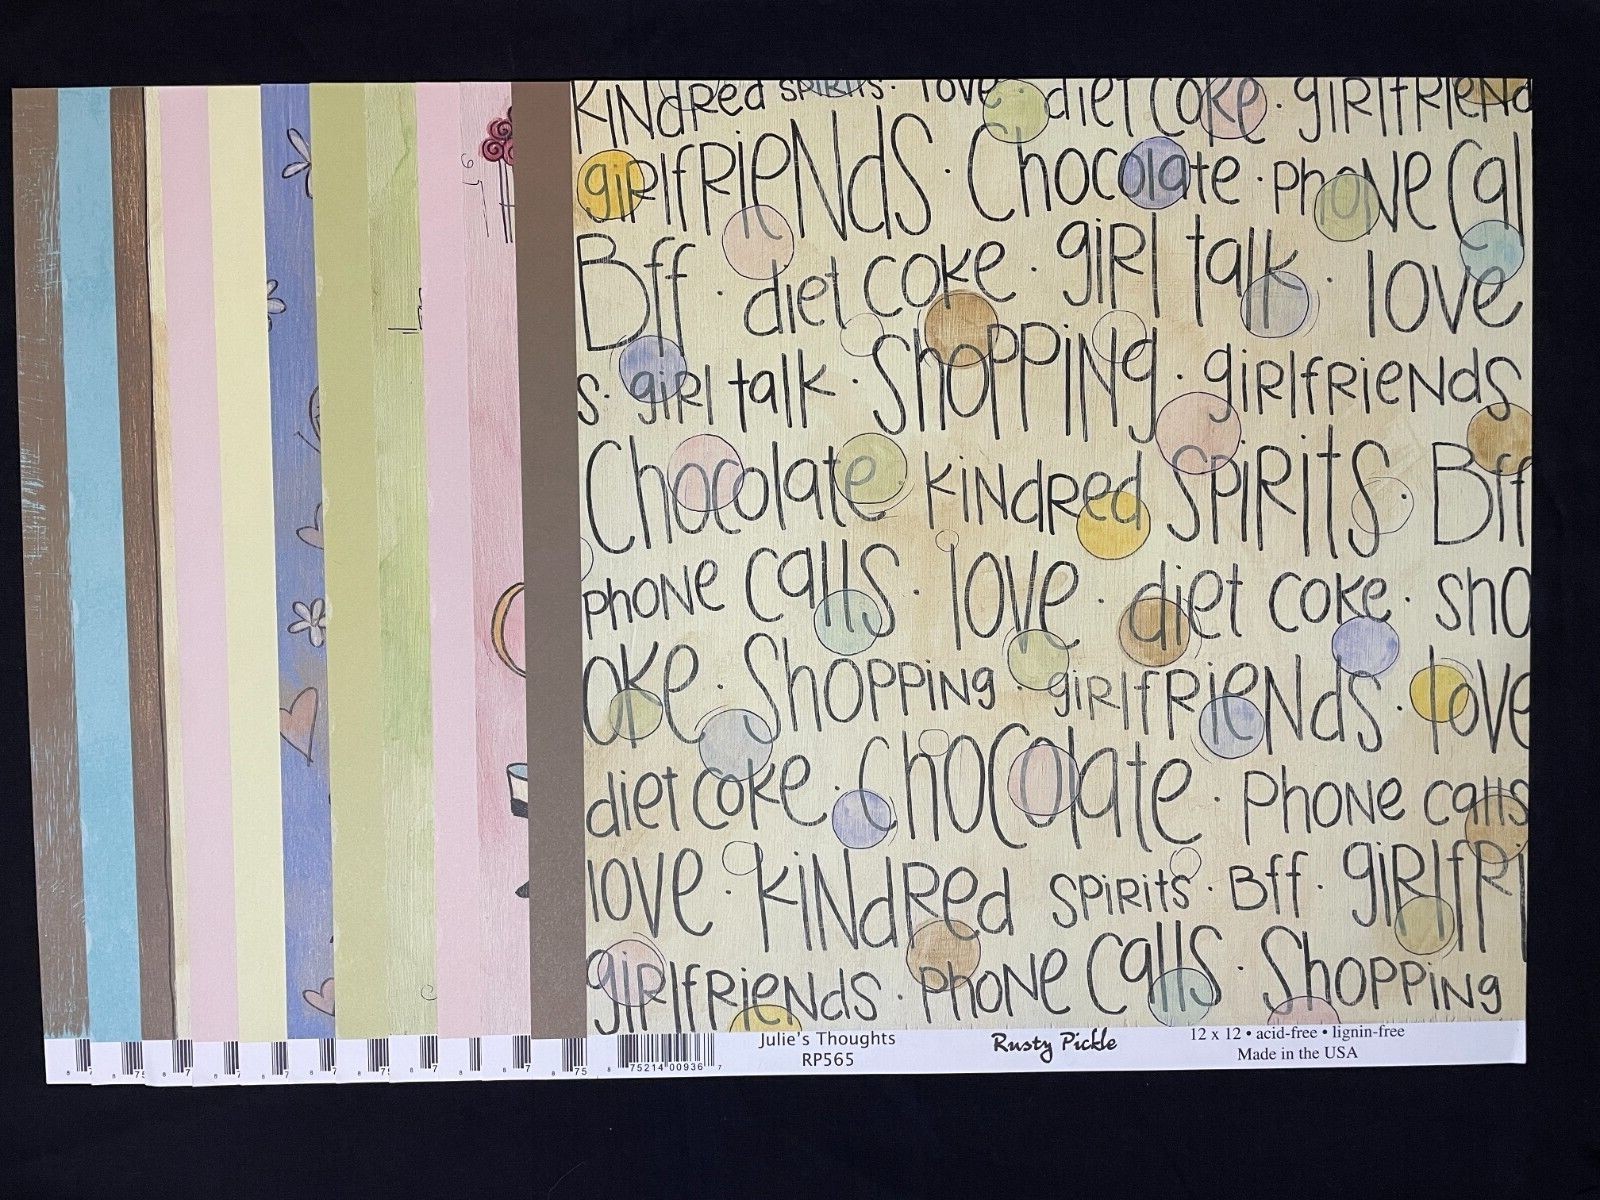 Kindred spirits. love · diet coke · girlfriend
girlfriends · Chocolate · phone Cal
Bff · diet coke · girl talk · love
s · girl talk · Shopping · girlfriends
Chocolate · kindred spirits · Bff
phone calls · love · diet coke · sho
oke · Shopping · girlfriends · love
diet coke · chocolate · phone calls
love · kindred spirits · Bff · girlfri
girlfriends · phone calls · Shopping
8 75214 00936 7
Julie's Thoughts
RP565
Rusty Pickle
12 x 12 • acid-free • lignin-free
Made in the USA